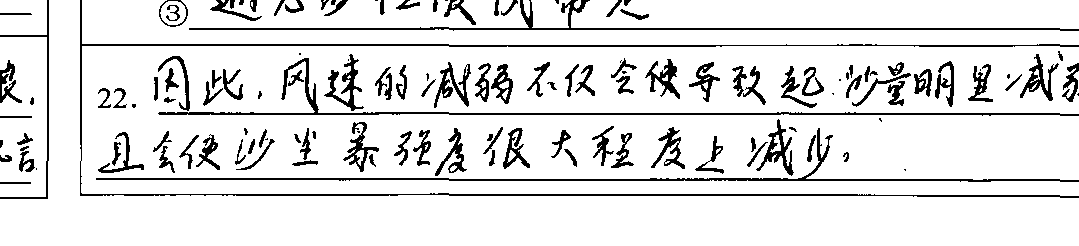 ③
22. 因此，风速的减弱不仅会使导致起沙量明显减
且会使沙尘暴强度很大程度上减少。
言